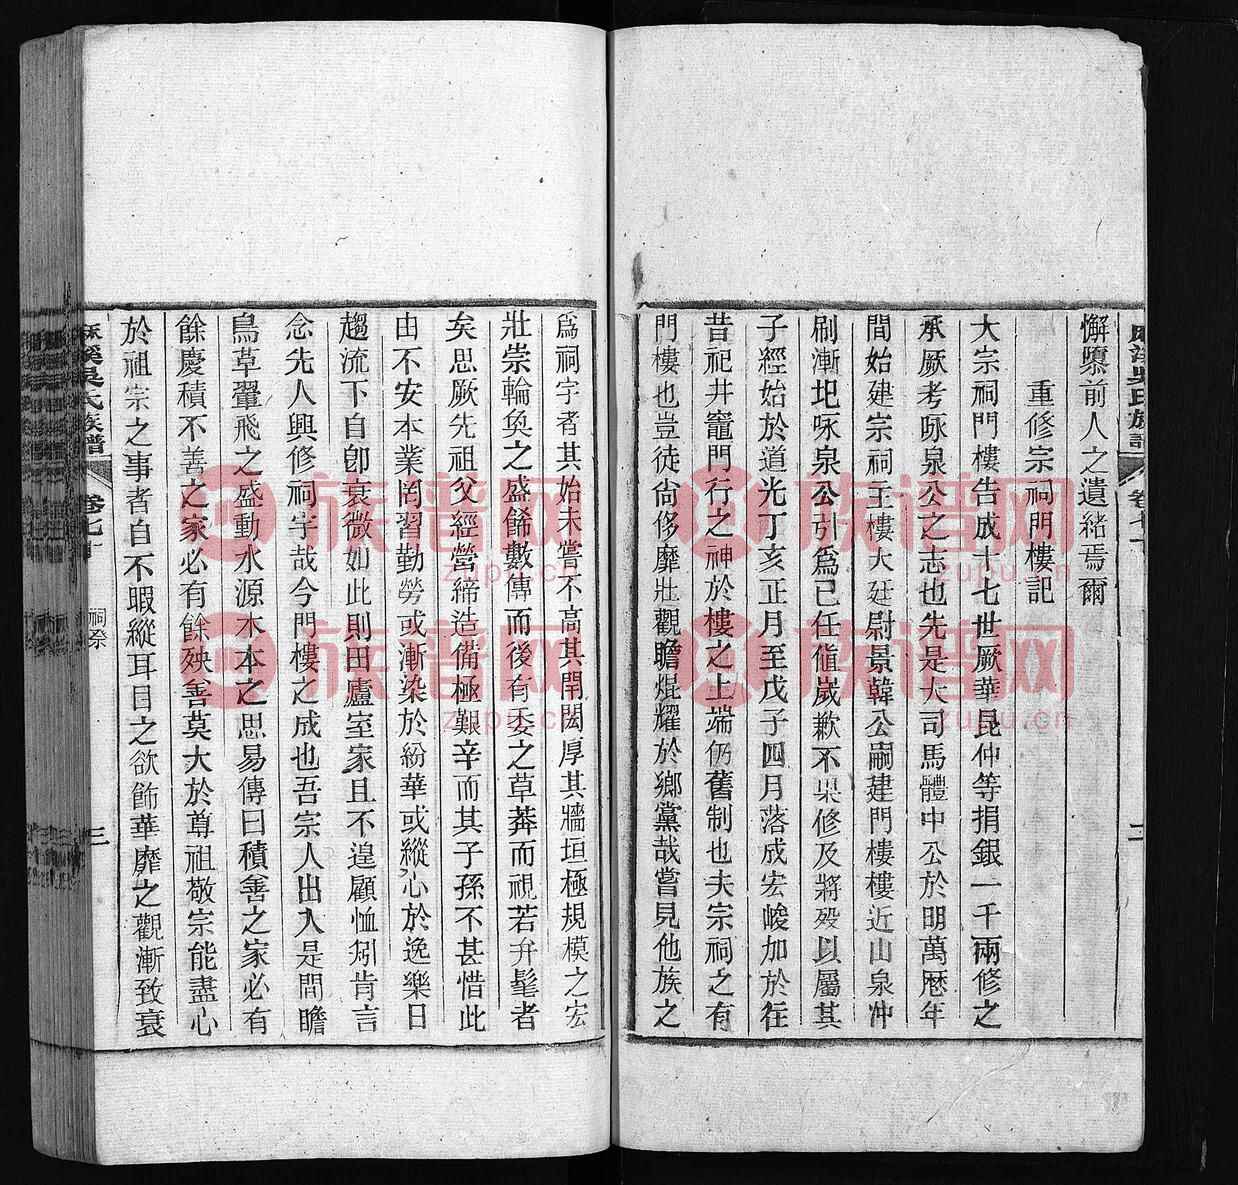 懈隳前人之遺緒焉爾
重修宗祠門樓記
大宗祠門樓告成十七世厥華昆仲等捐銀一千兩修之
承厥考咏泉公之志也先是大司馬體中公於明萬曆年
間始建宗祠玉樓大廷尉景韓公嗣建門樓樓近山泉沖
刷漸圯咏泉公引為已任值歲歉不果修及將歿以屬其
子經始於道光丁亥正月至戊子四月落成宏峻加於徃
昔祀井竈門行之神於樓之上端仍舊制也夫宗祠之有
門樓也豈徒尙侈靡壯觀瞻焜耀於鄉黨哉嘗見他族之
為祠宇者其始未嘗不高其閈閎厚其牆垣極規模之宏
壯崇輪奐之盛餙數傳而後有委之草莽而視若弁髦者
矣思厥先祖父經營締造備極艱辛而其子孫不甚惜此
由不安本業罔習勤勞或漸染於紛華或縱心於逸樂日
趨流下自卽衰微如此則田廬室家且不遑顧恤矧肯言
念先人興修祠宇哉今門樓之成也吾宗人出入是間瞻
鳥革翬飛之盛動水源木本之思易傳曰積善之家必有
餘慶積不善之家必有餘殃善莫大於尊祖敬宗能盡心
於祖宗之事者自不暇縱耳目之欲飾華靡之觀漸致衰
溪吳氏族譜 卷七下 祠祭 三
族谱网
zupu.cn
族谱网
zupu.cn
族谱网
zupu.cn
族谱网
zupu.cn